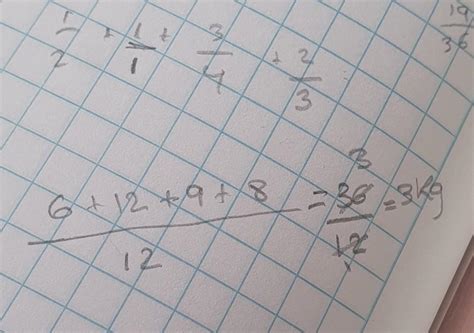 1/2 + 1/1 + 3/4 + 2/3
19/36
(6 + 12 + 9 + 8)/12 = 36/12 = 3kg
3
1